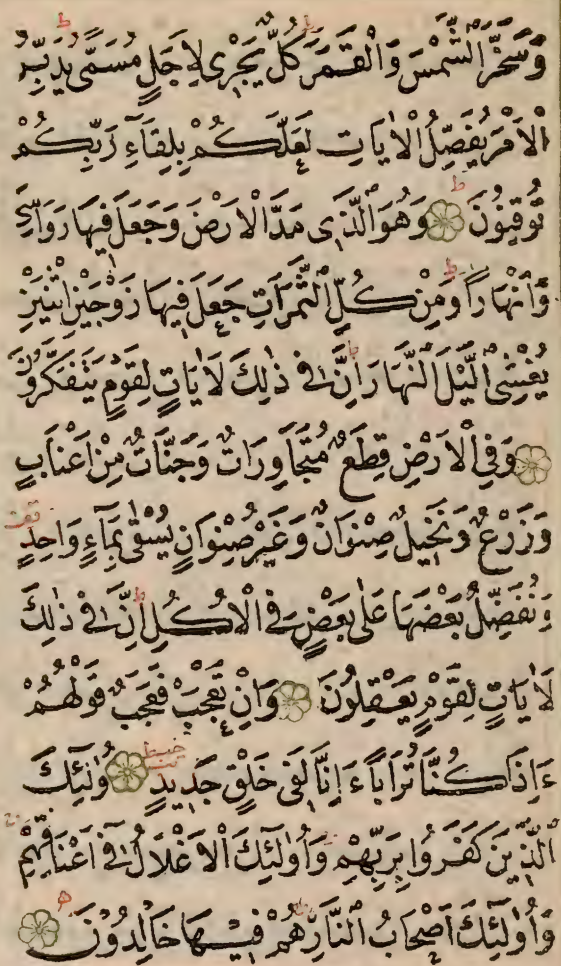 وَسَخَّرَ الشَّمْسَ وَالْقَمَرَ كُلٌّ يَجْرِى لِاَجَلٍ مُسَمًّى يُدَبِّرُ
الْاَمْرَ يُفَصِّلُ الْاٰيَاتِ لَعَلَّكُمْ بِلِقَآءِ رَبِّكُمْ
تُوقِنُونَ وَهُوَ الَّذِى مَدَّ الْاَرْضَ وَجَعَلَ فِيهَا رَوَاسِىَ
وَاَنْهَاراً وَمِنْ كُلِّ الثَّمَرَاتِ جَعَلَ فِيهَا زَوْجَيْنِ اثْنَيْنِ
يُغْشِى الَّيْلَ النَّهَارَ اِنَّ فِى ذٰلِكَ لَاٰيَاتٍ لِقَوْمٍ يَتَفَكَّرُونَ
وَفِى الْاَرْضِ قِطَعٌ مُتَجَاوِرَاتٌ وَجَنَّاتٌ مِنْ اَعْنَابٍ
وَزَرْعٌ وَنَخِيلٌ صِنْوَانٌ وَغَيْرُ صِنْوَانٍ يُسْقٰى بِمَآءٍ وَاحِدٍ
وَنُفَضِّلُ بَعْضَهَا عَلٰى بَعْضٍ فِى الْاُكُلِ اِنَّ فِى ذٰلِكَ
لَاٰيَاتٍ لِقَوْمٍ يَعْقِلُونَ وَاِنْ تَعْجَبْ فَعَجَبٌ قَوْلُهُمْ
ءَاِذَا كُنَّا تُرَاباً ءَاِنَّا لَفِى خَلْقٍ جَدِيدٍ اُولٰٓئِكَ
الَّذِينَ كَفَرُوا بِرَبِّهِمْ وَاُولٰٓئِكَ الْاَغْلَالُ فِى اَعْنَاقِهِمْ
وَاُولٰٓئِكَ اَصْحَابُ النَّارِ هُمْ فِيهَا خَالِدُونَ